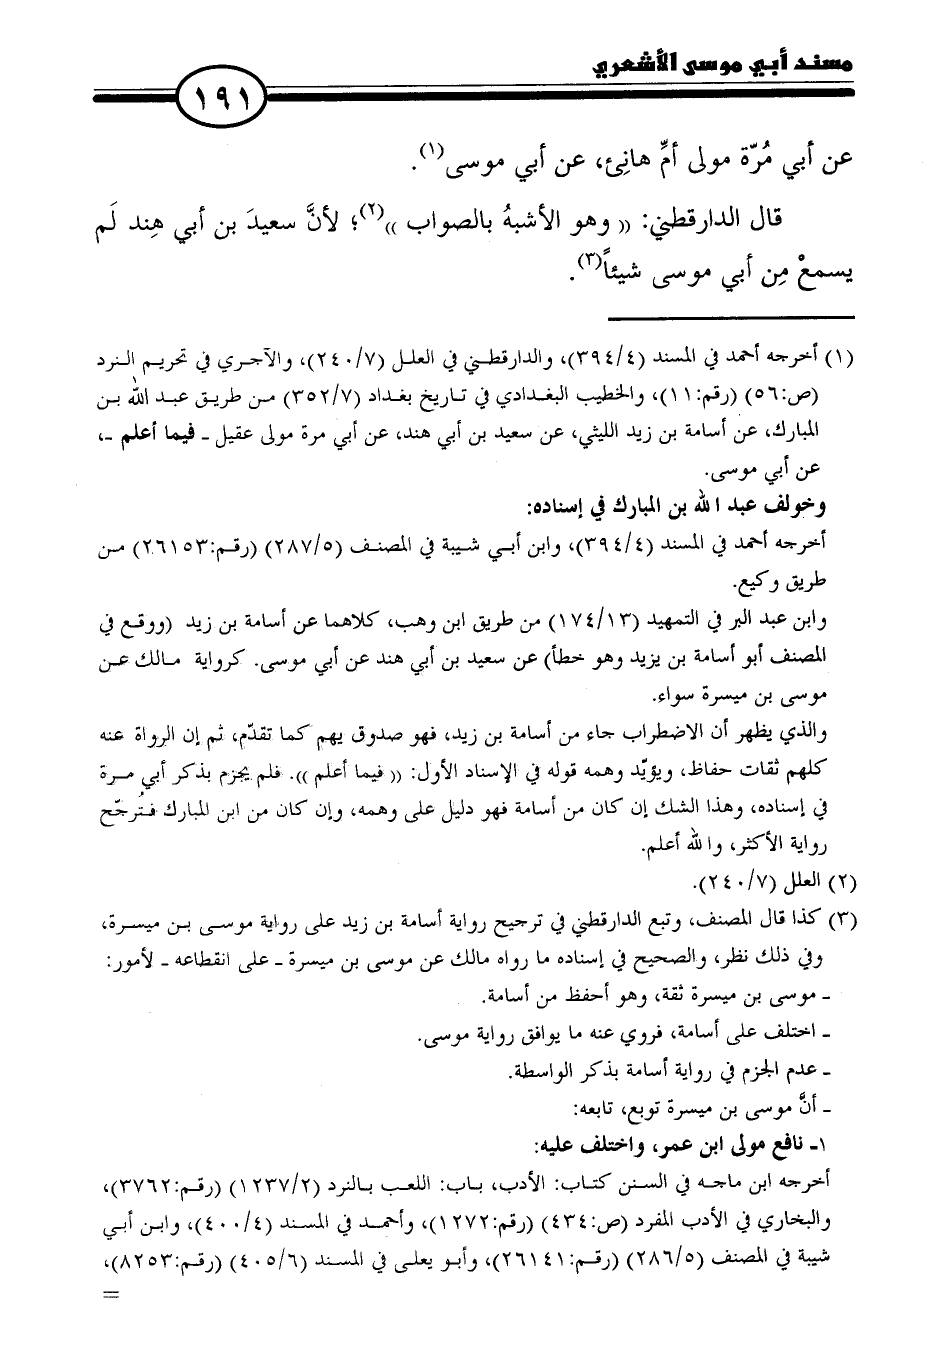 مسند أبي موسى الأشعري
١٩١
عن أبي مُرّة مولى أمِّ هانِئ، عن أبي موسى(١).
قال الدارقطني: (( وهو الأشبهُ بالصواب ))(٢)؛ لأنَّ سعيدَ بن أبي هِند لَم
يسمعْ مِن أبي موسى شيئاً(٣).
(١) أخرجه أحمد في المسند (٣٩٤/٤)، والدارقطني في العلل (٢٤٠/٧)، والآجري في تحريم النرد
(ص:٥٦) (رقم:١١)، والخطيب البغدادي في تاريخ بغداد (٣٥٢/٧) من طريق عبد الله بن
المبارك، عن أسامة بن زيد الليثي، عن سعيد بن أبي هند، عن أبي مرة مولى عقيل ـ فيما أعلم ـ،
عن أبي موسى.
وخولف عبد الله بن المبارك في إسناده:
أخرجه أحمد في المسند (٣٩٤/٤)، وابن أبي شيبة في المصنف (٢٨٧/٥) (رقم:٢٦١٥٣) من
طريق وكيع.
وابن عبد البر في التمهيد (١٧٤/١٣) من طريق ابن وهب، كلاهما عن أسامة بن زيد (ووقع في
المصنف أبو أسامة بن يزيد وهو خطأ) عن سعيد بن أبي هند عن أبي موسى. كرواية مالك عن
موسى بن ميسرة سواء.
والذي يظهر أن الاضطراب جاء من أسامة بن زيد، فهو صدوق يهم كما تقدّم، ثم إن الرواة عنه
كلهم ثقات حفاظ، ويؤيّد وهمه قوله في الإسناد الأول: (( فيما أعلم )). فلم يجزم بذكر أبي مرة
في إسناده، وهذا الشك إن كان من أسامة فهو دليل على وهمه، وإن كان من ابن المبارك فتُرجّح
رواية الأكثر، والله أعلم.
(٢) العلل (٢٤٠/٧).
(٣) كذا قال المصنف، وتبع الدارقطني في ترجيح رواية أسامة بن زيد على رواية موسى بن ميسرة،
وفي ذلك نظر، والصحيح في إسناده ما رواه مالك عن موسى بن ميسرة ـ على انقطاعه ـ لأمور:
ـ موسى بن ميسرة ثقة، وهو أحفظ من أسامة.
ـ اختلف على أسامة، فروي عنه ما يوافق رواية موسى.
ـ عدم الجزم في رواية أسامة بذكر الواسطة.
ـ أنَّ موسى بن ميسرة توبع، تابعه:
١ـ نافع مولى ابن عمر، واختلف عليه:
أخرجه ابن ماجه في السنن كتاب: الأدب، باب: اللعب بالنرد (١٢٣٧/٢) (رقم:٣٧٦٢)،
والبخاري في الأدب المفرد (ص:٤٣٤) (رقم:١٢٧٢)، وأحمد في المسند (٤٠٠/٤)، وابن أبي
شيبة في المصنف (٢٨٦/٥) (رقم:٢٦١٤١)، وأبو يعلى في المسند (٤٠٥/٦) (رقم:٨٢٥٣)،
=